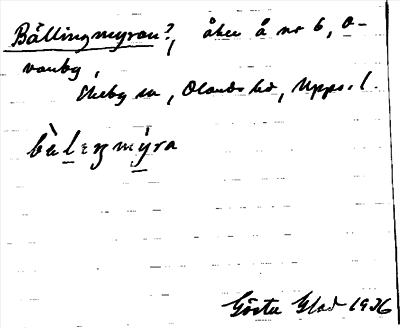 Bällingmyran?, åker å nr 6, O-
vanby,
Ekeby sn, Olands hd, Upps. l.
bè̀lɩŋmy̌ra
Gösta Glad 1936